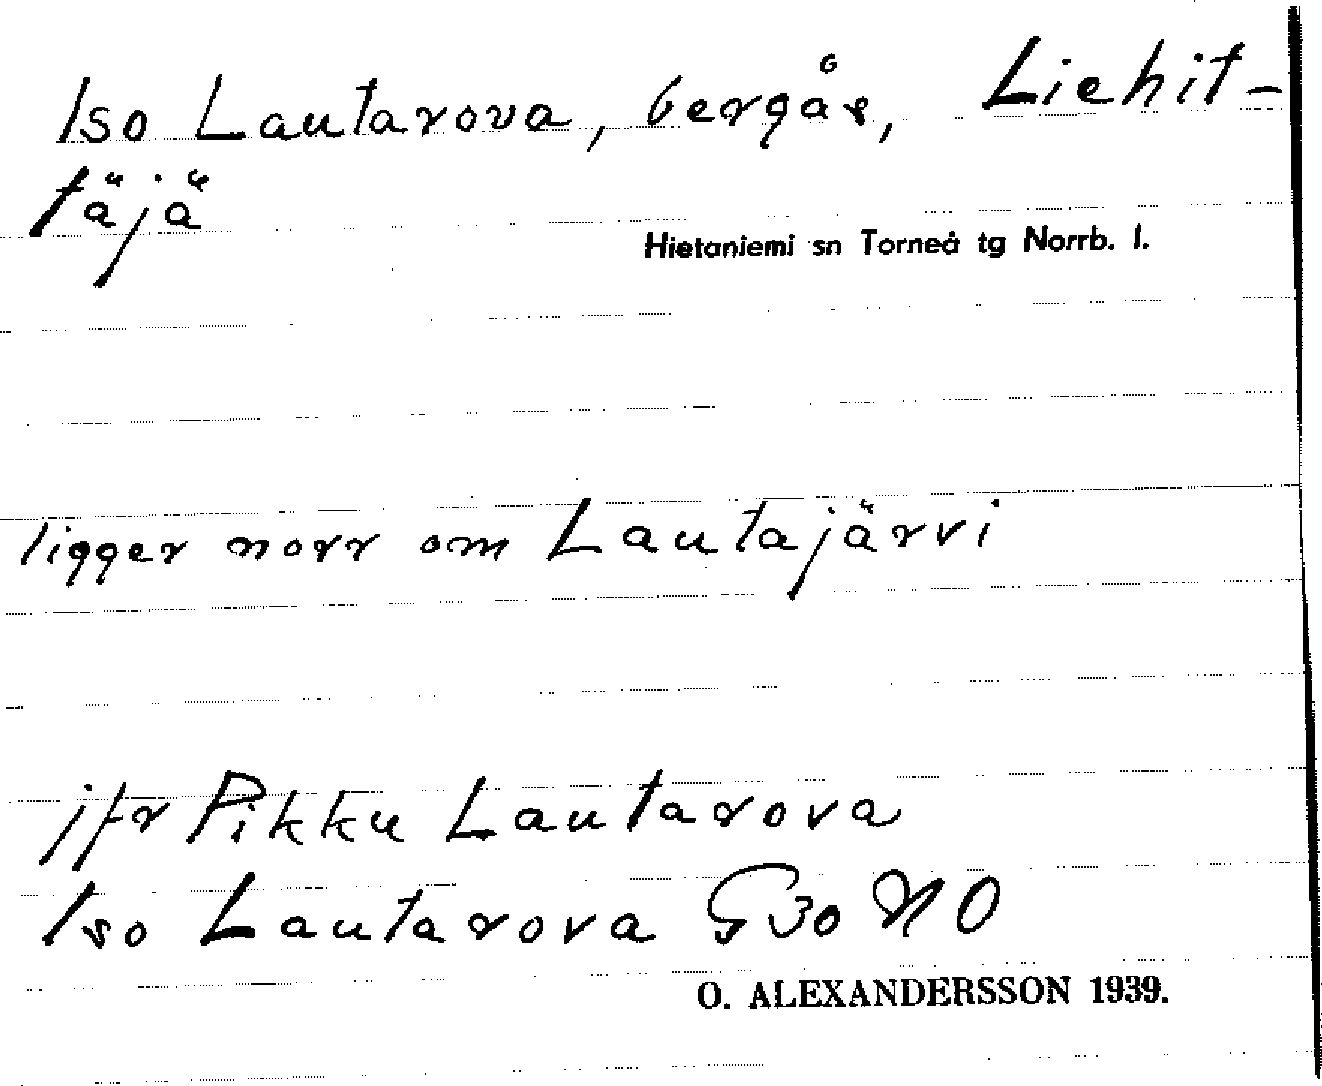 Iso Lautarova, bergås, Liehit-
täjä
Hietaniemi sn Torneå tg Norrb. l.
ligger norr om Lautajärvi
jfr Pikku Lautarova
Iso Lautarova G30 NO
O. ALEXANDERSSON 1939.